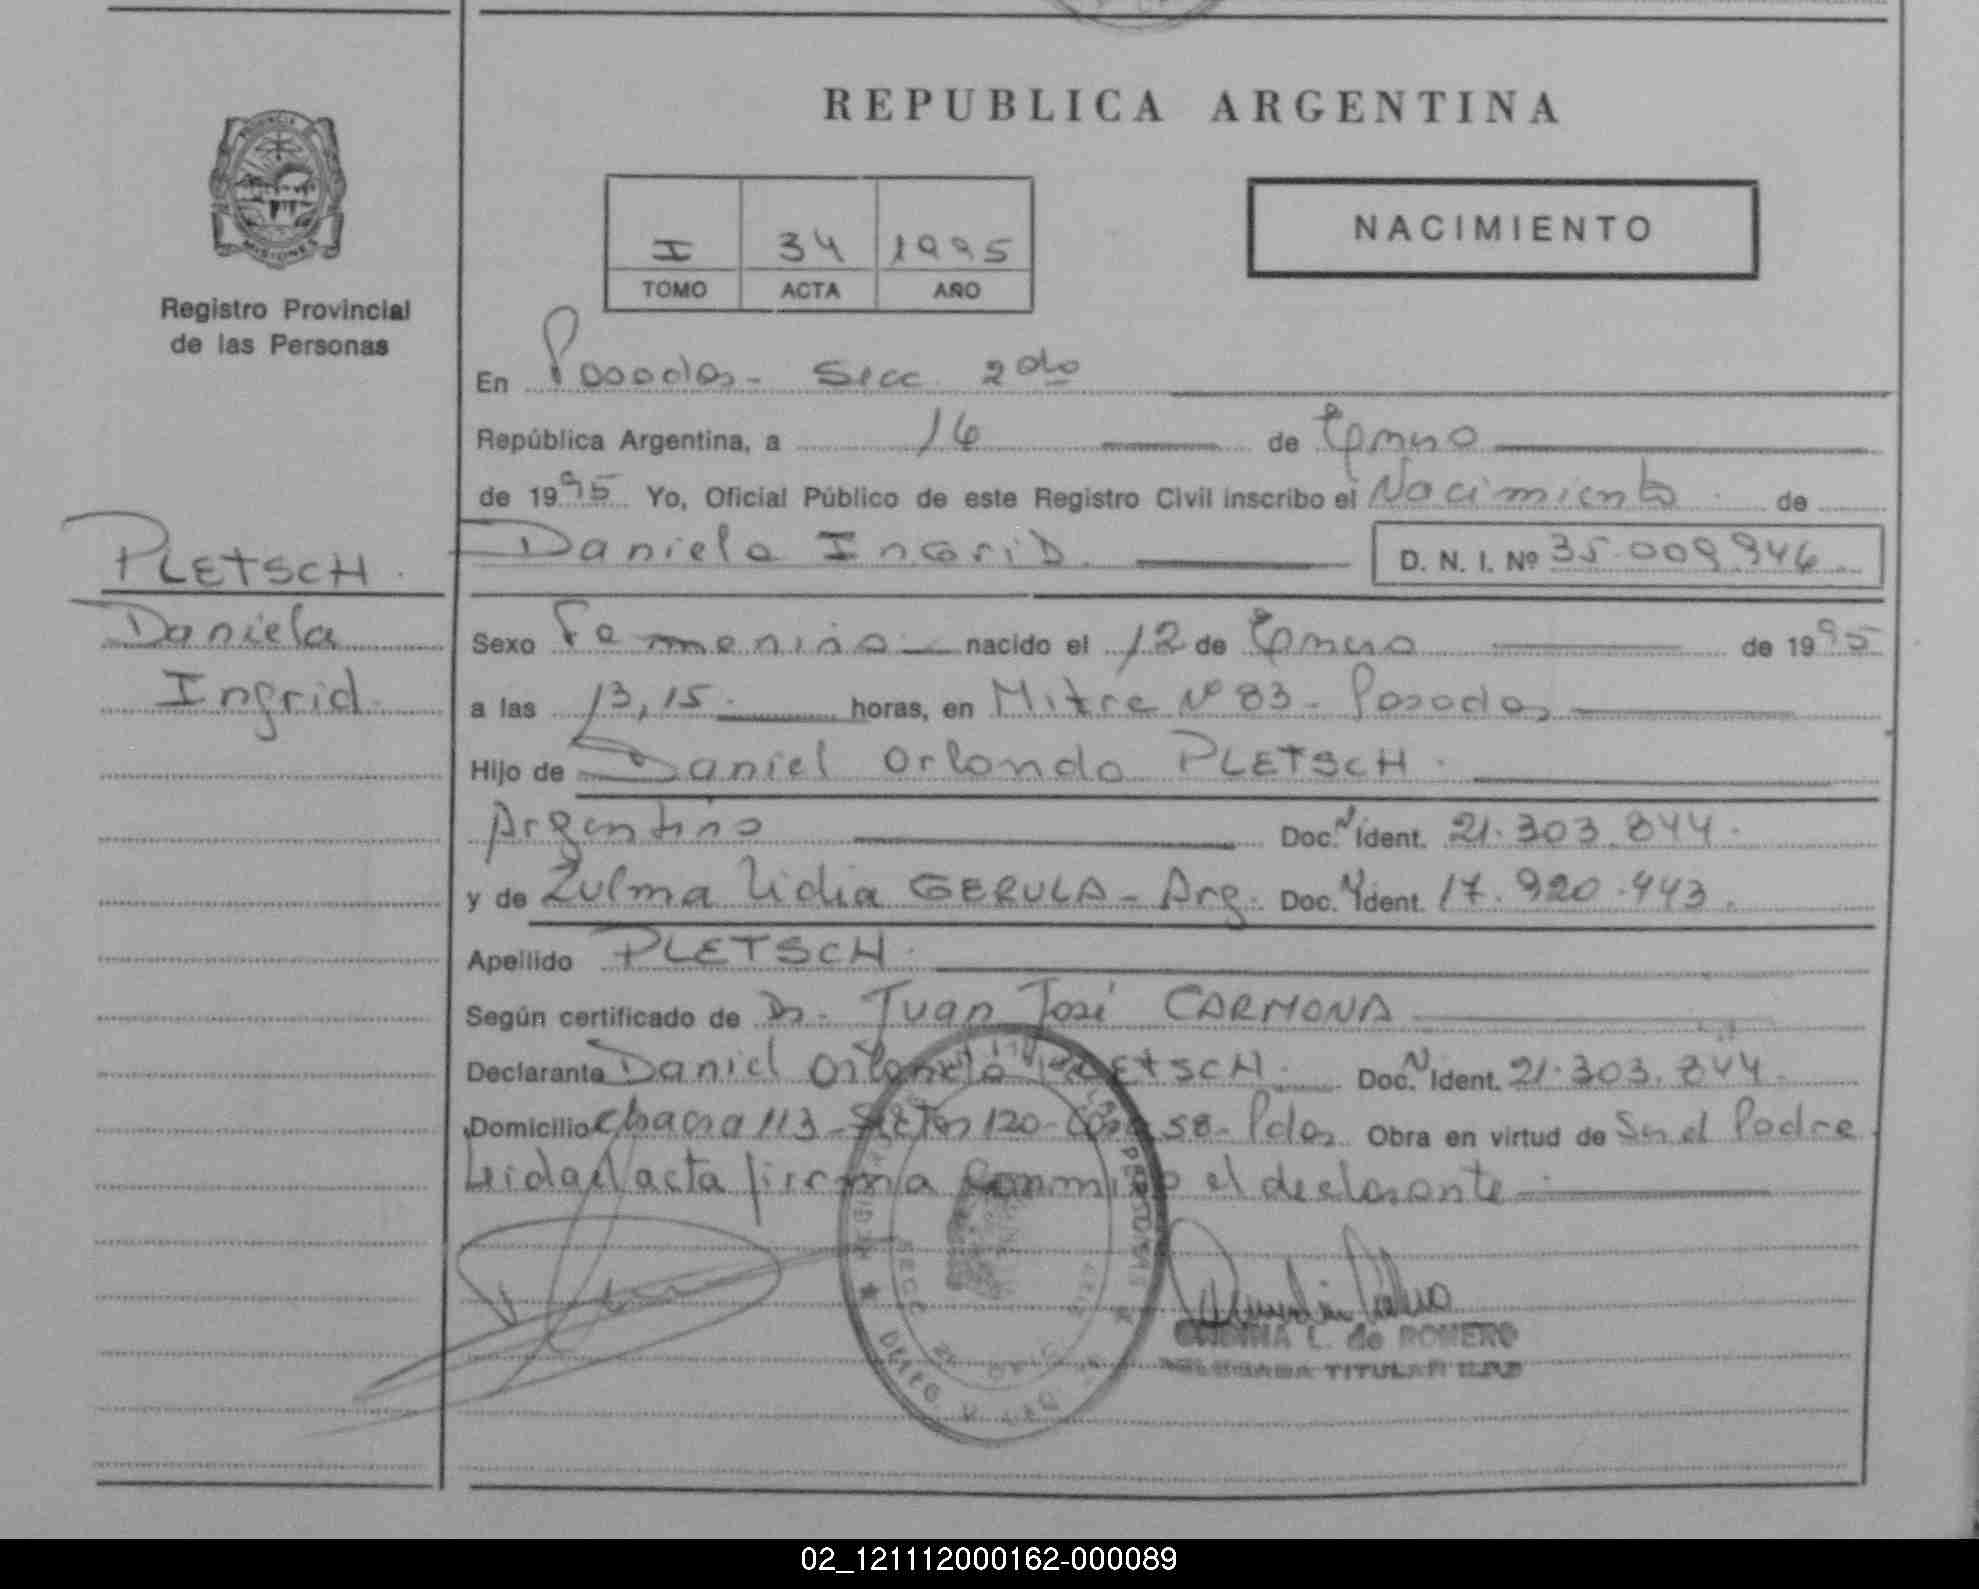 REPUBLICA ARGENTINA
PROVINCIA
MISIONES
Registro Provincial
de las Personas
NACIMIENTO
I 34 1995
TOMO ACTA AÑO
En Posadas - Secc. 2da
República Argentina, a 16 de Enero
de 1995 Yo, Oficial Público de este Registro Civil inscribo el Nacimiento de
Daniela Ingrid D. N. I. Nº 35.009.946
PLETSCH.
Daniela
Ingrid.
Sexo Femenino nacido el 12 de Enero de 1995
a las 13,15 horas, en Mitre Nº 83 - Posadas
Hijo de Daniel Orlando PLETSCH.
Argentino Doc. N Ident. 21.303.844.
y de Zulma Lidia GERULA - Arg. Doc. N Ident. 17.920.443.
Apellido PLETSCH.
Según certificado de Dr. Juan José CARMONA
Declarante Daniel Orlando PLETSCH. Doc. N Ident. 21.303.844.
Domicilio Chacra 113 - Sector 120 - Casa 58 - Pdas Obra en virtud de Ser el Padre
Leida el acta firma conmigo el declarante
SECC 2
PERSONAS
ONDINA L. de ROMERO
DELEGADA TITULAR
02_121112000162-000089